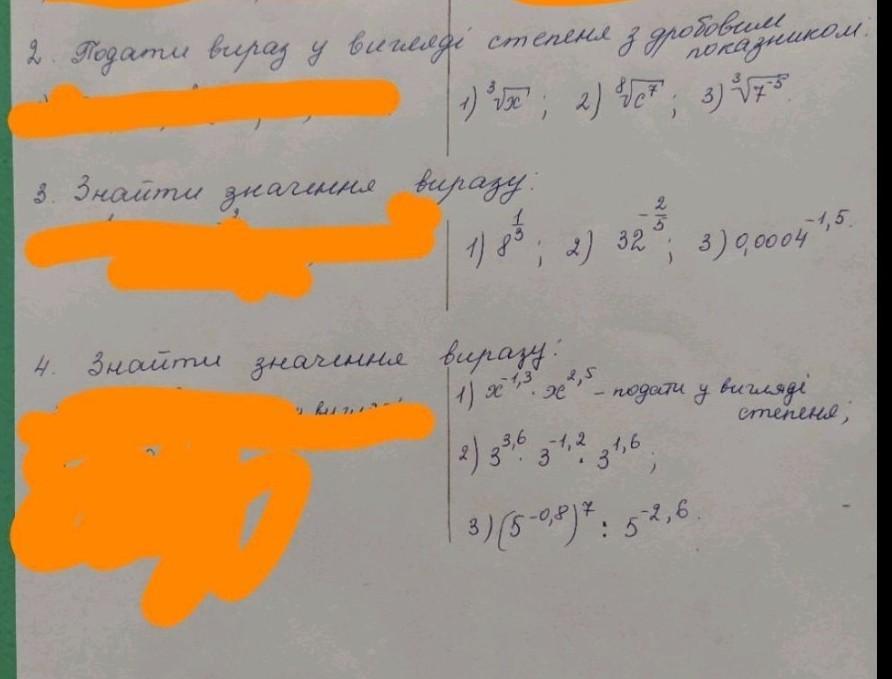 2. Подати вираз у вигляді степеня з дробовим показником:
1) ∛x ; 2) ⁸√c⁷ ; 3) ∛7⁻⁵.
3. Знайти значення виразу:
1) 8^(1/3) ; 2) 32^(-2/5) ; 3) 0,0004^(-1,5).
4. Знайти значення виразу:
1) x^(-1,3) · x^(2,5) – подати у вигляді
степеня;
2) 3^(3,6) · 3^(-1,2) · 3^(1,6) ;
3) (5^(-0,8))^7 : 5^(-2,6).